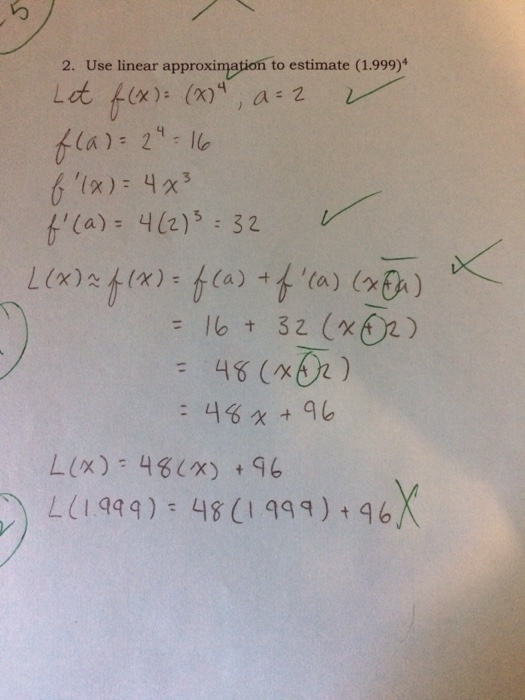 5
2. Use linear approximation to estimate (1.999)⁴
Let f(x) = (x)⁴, a = 2
f(a) = 2⁴ = 16
f'(x) = 4x³
f'(a) = 4(2)³ = 32
L(x) ≈ f(x) = f(a) + f'(a) (x+a)
= 16 + 32 (x+2)
= 48 (x+2)
= 48x + 96
L(x) = 48(x) + 96
L(1.999) = 48(1.999) + 96